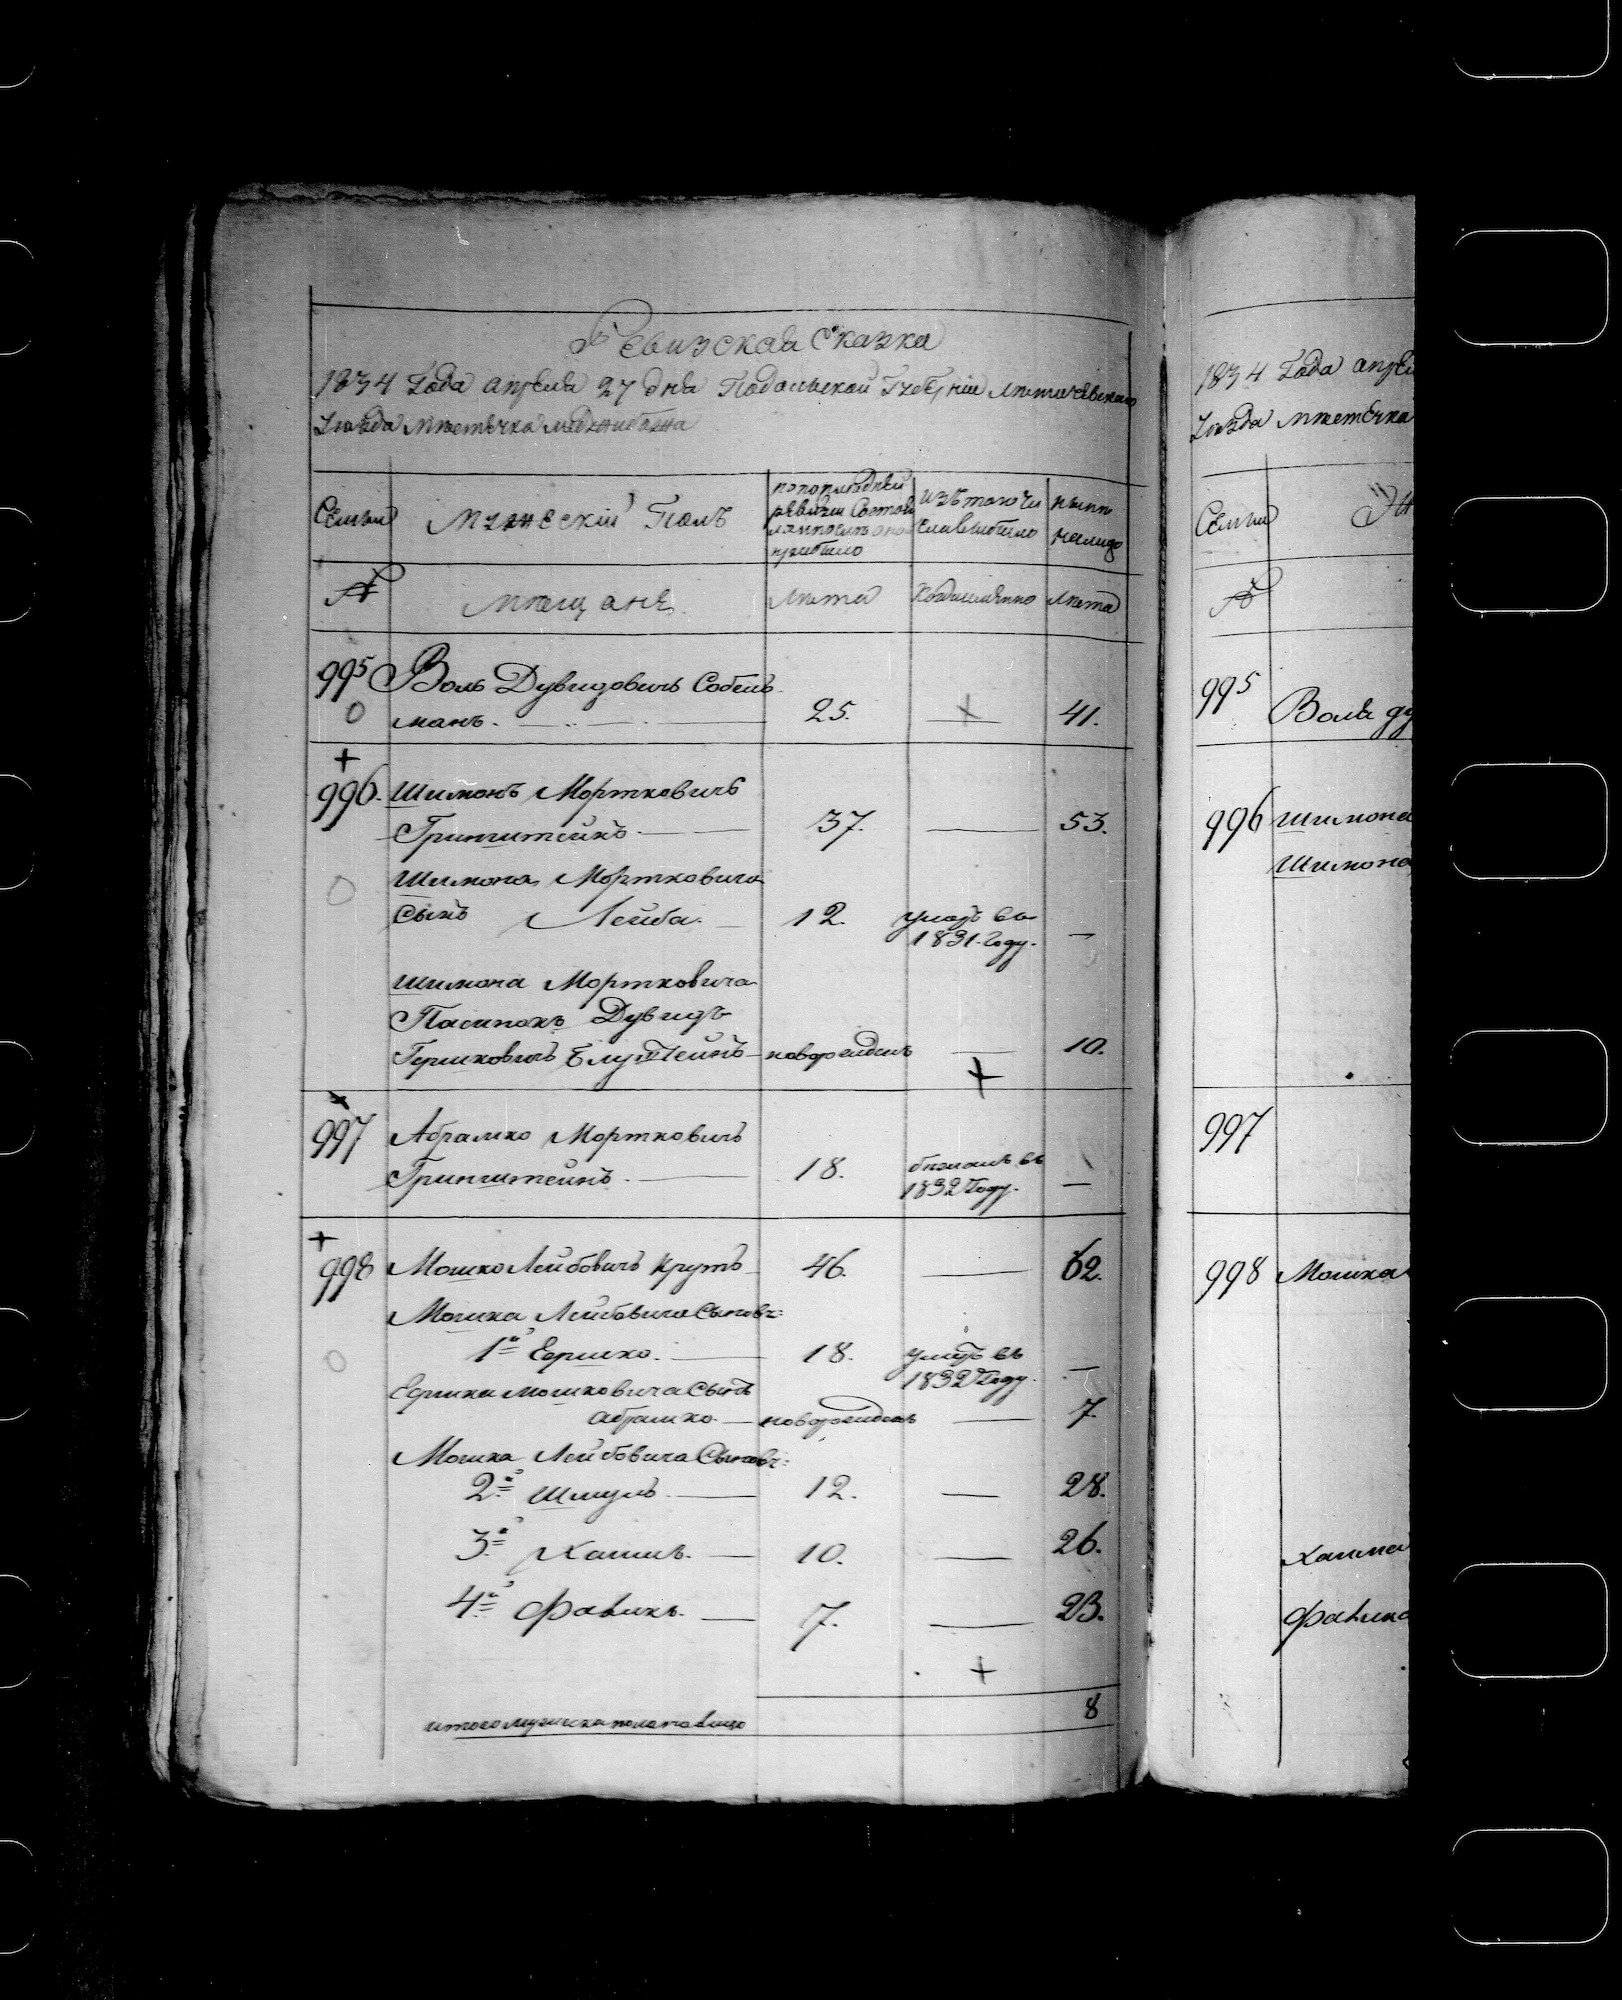 Ревизская Сказка
1834 Года апреля 27 дня Подольской Губерніи Летичевскаго
Уѣзда Мѣстечка Меджибожа
Семьи
Мужескій Полъ
по последней
ревизіи состояло
и послѣ оной
прибыло
Изъ того числа выбыло
ныне
налицо
№
Мѣщане
Лѣта
Когда именно
Лѣта
995 Воль Дувидовичъ Собель-
манъ. 25. 41.
996. Шимонъ Мортковичъ
Гринштейнъ. 37. 53.
Шимона Мортковича
Сынъ Лейба. 12. умеръ въ
1831. Году.
Шимона Мортковича
Пасинокъ Дувидъ
Гершковичъ Блуштейнъ новорожденъ 10.
997 Абрамко Мортковичъ
Гринштейнъ. 18. бежалъ въ
1832 Году.
998 Мошко Лейбовичъ Крутъ 46. 62.
Мошка Лейбовича Сыновья:
1й Ершко. 18. умеръ въ
1832 Году.
Ершка Мошковича Сынъ
Абрамко. новорожденъ 7.
Мошка Лейбовича Сыновья:
2й Шмуль. 12. 28.
3й Хаимъ. 10. 26.
4й Фавикъ. 7. 23.
итого мужеска пола налицо 8
1834 Года апре
Уѣзда Мѣстечка
Семьи
№
995
Воля Ду
996 Шимона
Шимона
997
998 Мошка
Хаима
Фавика